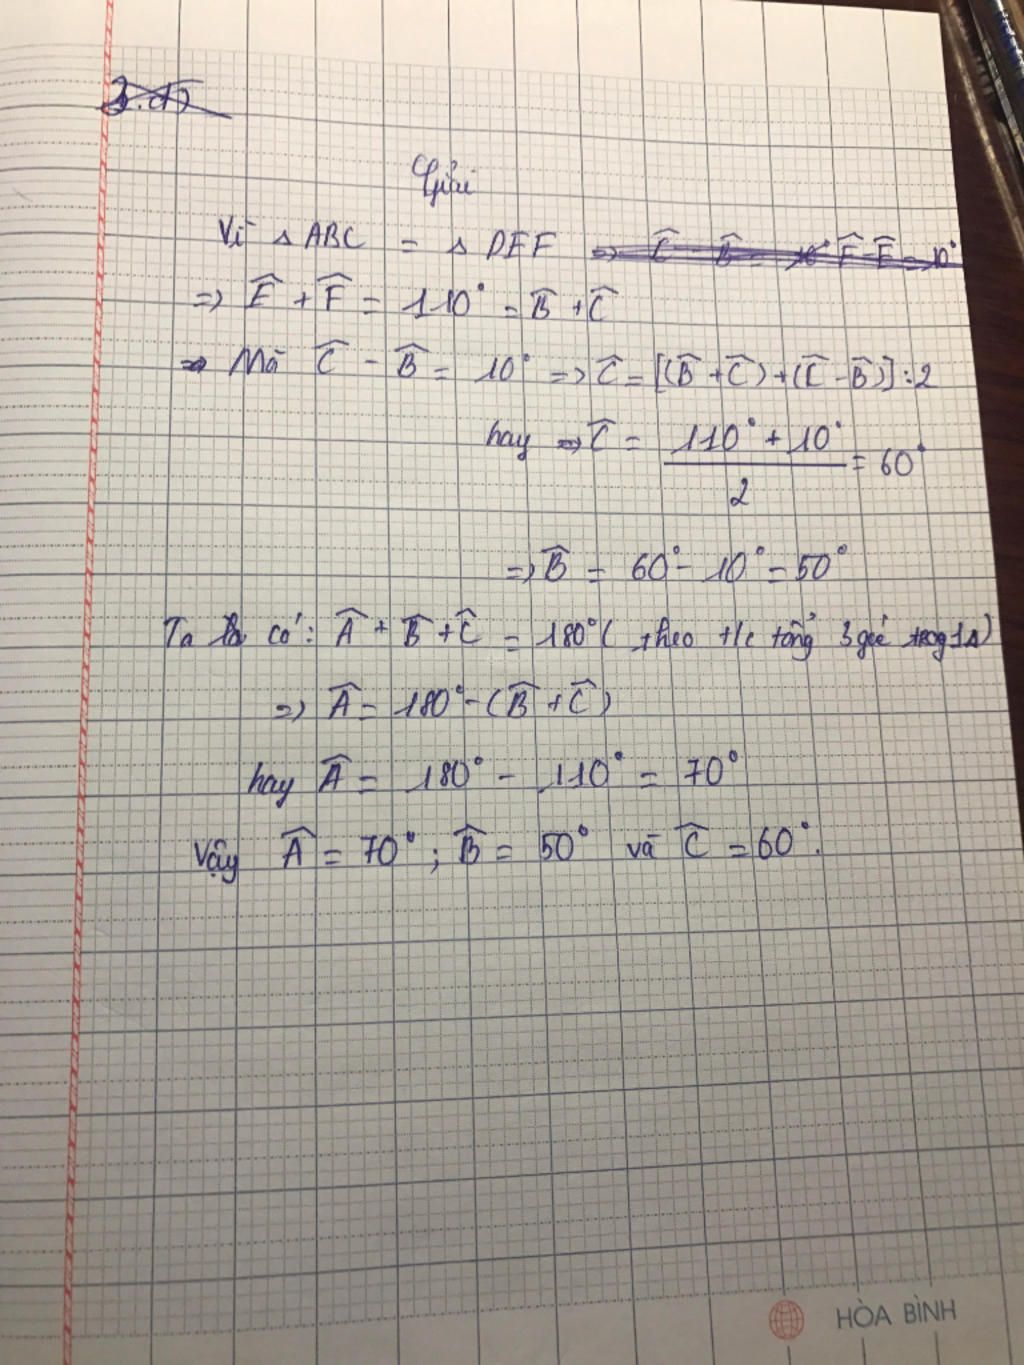 Giải
Vì △ABC = △DEF ⇒ Ĉ - B̂ = 10° F̂ - Ê = 10°
⇒ Ê + F̂ = 110° = B̂ + Ĉ
Mà Ĉ - B̂ = 10° ⇒ Ĉ = [(B̂ + Ĉ) + (Ĉ - B̂)] : 2
hay ⇒ Ĉ = (110° + 10°)/2 = 60°
⇒ B̂ = 60° - 10° = 50°
Ta có: Â + B̂ + Ĉ = 180° ( theo t/c tổng 3 góc trog 1△)
⇒ Â = 180° - (B̂ + Ĉ)
hay Â = 180° - 110° = 70°
Vậy Â = 70° ; B̂ = 50° và Ĉ = 60°.
HÒA BÌNH